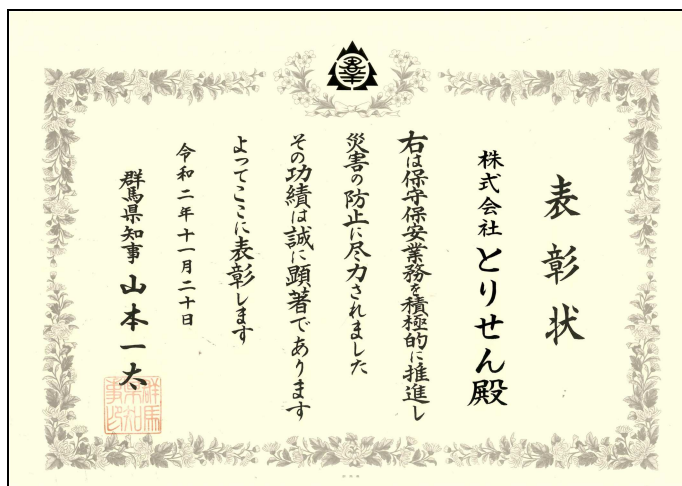 表彰状
株式会社とりせん殿
右は保守保安業務を積極的に推進し
災害の防止に尽力されました
その功績は誠に顕著であります
よってここに表彰します
令和二年十一月二十日
群馬県知事 山本一太
群馬県知事印